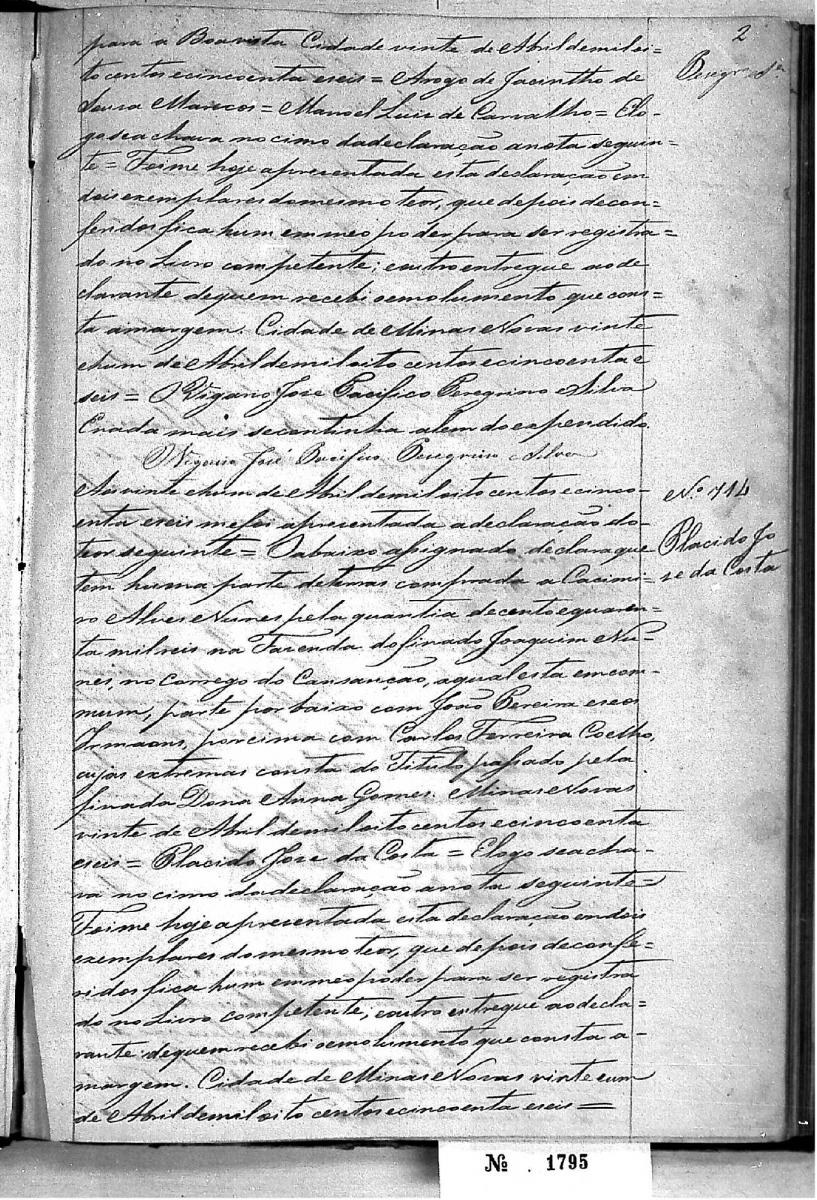 2
para a Boa vista Cidade vinte de Abril de mil oi=
to centos e cincoenta e seis = Arogo de Jacintho de
Peregrino Sª
Souza Marecos = Manoel Luis de Carvalho = Elo-
go se achava no cimo da declaração a nota seguin=
te = Foi me hoje apresentada esta declaração em
dois exemplares do mesmo teor, que depois de con=
feridos fica hum em meo poder para ser registra=
do no Livro competente; e outro entregue ao de
clarante de quem recebi o emolumento que cons=
ta a margem. Cidade de Minas Novas vinte
e hum de Abril de mil oito centos e cincoenta e
seis = O Vigario José Pacifico Peregrino e Silva
E nada mais se continha alem do expendido.
O Vigario José Pacifico Peregrino e Silva
Aos vinte e hum de Abril de mil oito centos e cinco-
enta e seis me foi apresentada a declaração do
teor seguinte = O abaixo assignado declara que
tem huma parte de terras comprada a Cacimi=
ro Alves Nunes pela quantia de cento e quaren=
ta mil reis na Fazenda do finado Joaquim Nu=
nes, no corrego do Cansanção, a qual esta em com=
mum, parte por baixo com João Pereira e seos
Irmaons, por cima com Carlos Ferreira Coelho,
cujas extremas consta do Titulo passado pela
finada Dona Anna Gomes. Minas Novas
vinte de Abril de mil oito centos e cincoenta
e seis = Placido José da Costa = E logo se acha-
va no cimo da declaração a nota seguinte=
Foi me hoje apresentada esta declaração em dois
exemplares do mesmo teor, que depois de confe=
ridos fica hum em meo poder para ser registra
do no Livro competente; e outro entregue ao decla=
rante de quem recebi o emolumento que consta a-
margem. Cidade de Minas Novas vinte e um
de Abril de mil oito centos e cincoenta e seis =
Nº 714
Placido Jo
se da Costa
№ . 1795